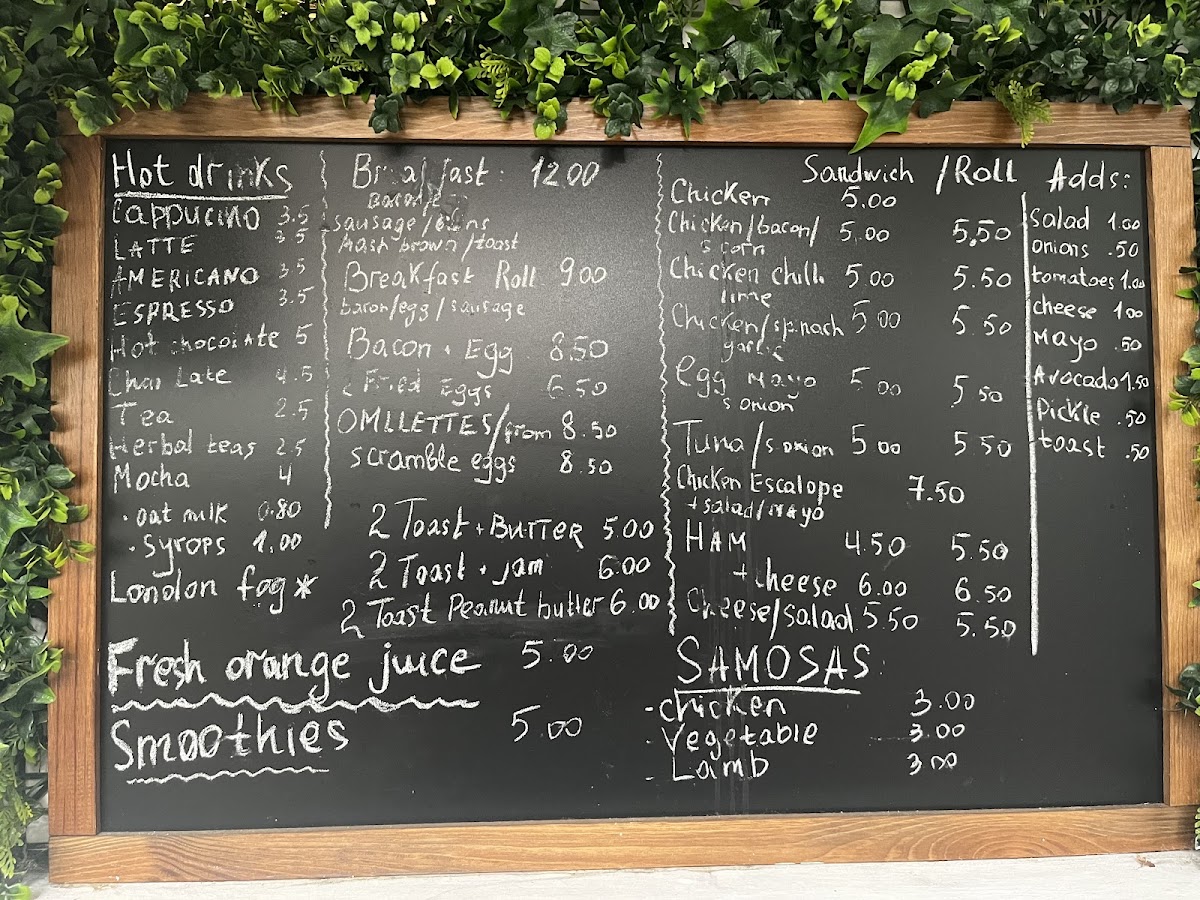 Hot drinks
CAPPUCINO 3.5
LATTE 3.5
AMERICANO 3.5
ESPRESSO 3.5
Hot chocolate 5
Chai Late 4.5
Tea 2.5
Herbal teas 2.5
Mocha 4
· oat milk 0.80
· syrops 1.00
London fog*
Breakfast: 12.00
sausage/
hash brown/toast
Breakfast Roll 9.00
bacon/egg/sausage
Bacon + Egg 8.50
2 Fried Eggs 6.50
OMLLETTES/from 8.50
scramble eggs 8.50
2 Toast + BUTTER 5.00
2 Toast + jam 6.00
2 Toast Peanut butter 6.00
Fresh orange juice 5.00
Smoothies 5.00
Sandwich /Roll
Chicken 5.00
Chicken/bacon/ 5.00 5.50
s corn
Chicken chilli 5.00 5.50
lime
Chicken/spinach 5.00 5.50
garlic
egg mayo 5.00 5.50
s onion
Tuna/s onion 5.00 5.50
Chicken Escalope 7.50
+ salad/mayo
HAM 4.50 5.50
+ cheese 6.00 6.50
Cheese/salad 5.50 5.50
SAMOSAS:
- chicken 3.00
- Vegetable 3.00
- Lamb 3.00
Adds:
salad 1.00
onions .50
tomatoes 1.00
cheese 1.00
Mayo .50
Avocado 1.50
Pickle .50
toast .50